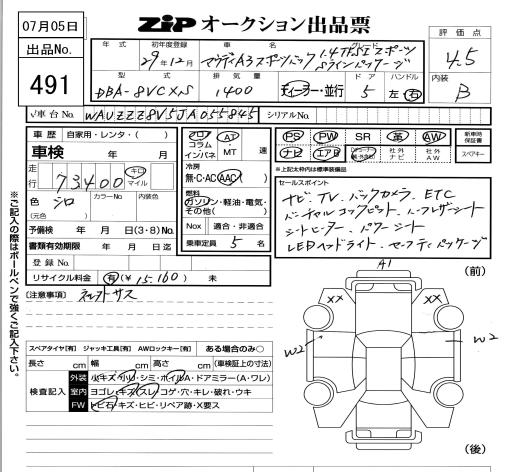 07月05日
出品No.
491
ZIP オークション出品票
評価点
4.5
内装
B
年式 初年度登録 車名 グレード
29年12月 アウディA3スポーツバック 1.4TFSIスポーツ
Sラインパッケージ
型式 排気量 ドア ハンドル
DBA-8VCXS 1400 ディーラー・並行 5 左・右
車台No. WAUZZZ8V5JA055845 シリアルNo.
車歴 自家用・レンタ・( )
車検 年 月
走行 73400 キロ マイル
色 シロ カラーNo 内装色
(元色)
予備検 年 月 日(3・8)No.
書類有効期限 年 月 日迄
登録No.
リサイクル料金 有(¥15.160) 未
フロア コラム インパネ AT ・ MT 速
冷房
無・C・AC・AAC
燃料
ガソリン・軽油・電気・その他( )
Nox 適合・非適合
乗車定員 5 名
PS PW SR 革 AW 新車時保証書
ナビ エアB 社外ナビ 社外AW スペアキー
※上記太枠内は標準装備品
セールスポイント
ナビ.TV.バックカメラ.ETC
バーチャルコックピット.ハーフレザーシート
シートヒーター.パワーシート
LEDヘッドライト.セーフティパッケージ
※ご記入の際はボールペンで強くご記入下さい。
[注意事項]
スペアタイヤ[有] ジャッキ工具[有] AWロックキー[有] ある場合のみ○
長さ cm 幅 cm 高さ cm (車検証上の寸法)
検査記入
外装 小キズ・小凹・シミ・ホイルA・ドアミラー(A・ワレ)
室内 ヨゴレ・キズ・スレ・コゲ・穴・キレ・破れ・ウキ
FW トビ石・キズ・ヒビ・リペア跡・X要ス
A1
(前)
XX XX
W2 W2
(後)